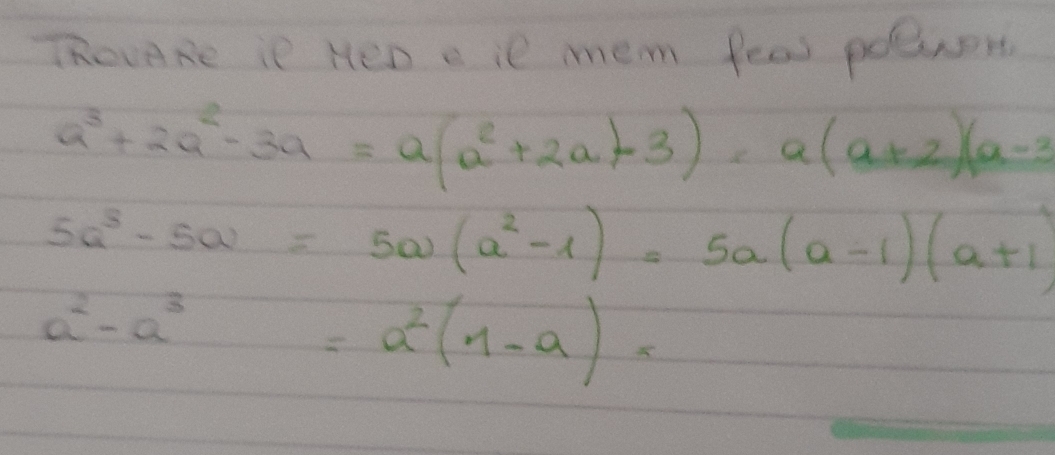 TROVARE il MCD e il mcm fra i polinomi
a³ + 2a² - 3a = a(a² + 2a - 3) = a(a+2)(a-3
5a³ - 5a = 5a(a² - 1) = 5a(a-1)(a+1)
a² - a³ = a²(1 - a) =